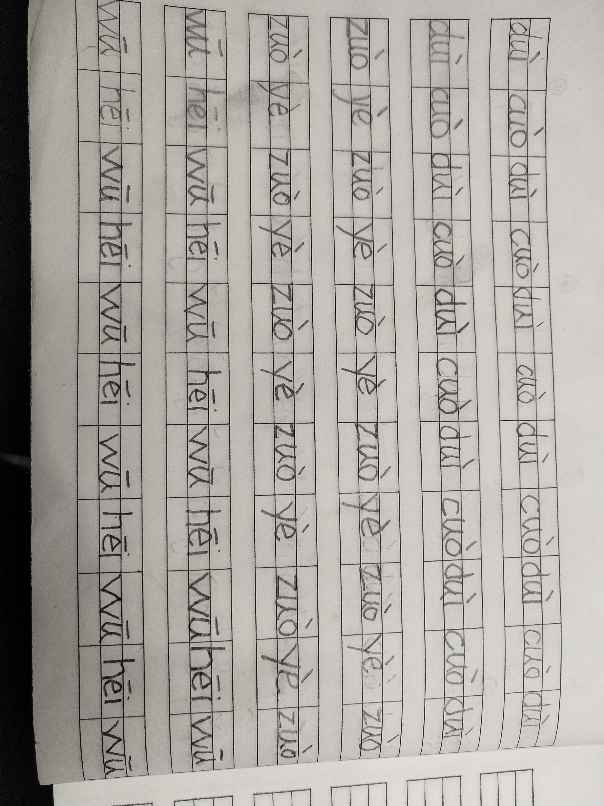 duì cuò duì cuò duì cuò duì cuò duì cuò duì
duì cuò duì cuò duì cuò duì cuò duì cuò duì
zuò yè zuò yè zuò yè zuò yè zuò yè zuò
zuò yè zuò yè zuò yè zuò yè zuò yè zuò
wū hēi wū hēi wū hēi wū hēi wū hēi wū
wū hēi wū hēi wū hēi wū hēi wū hēi wū